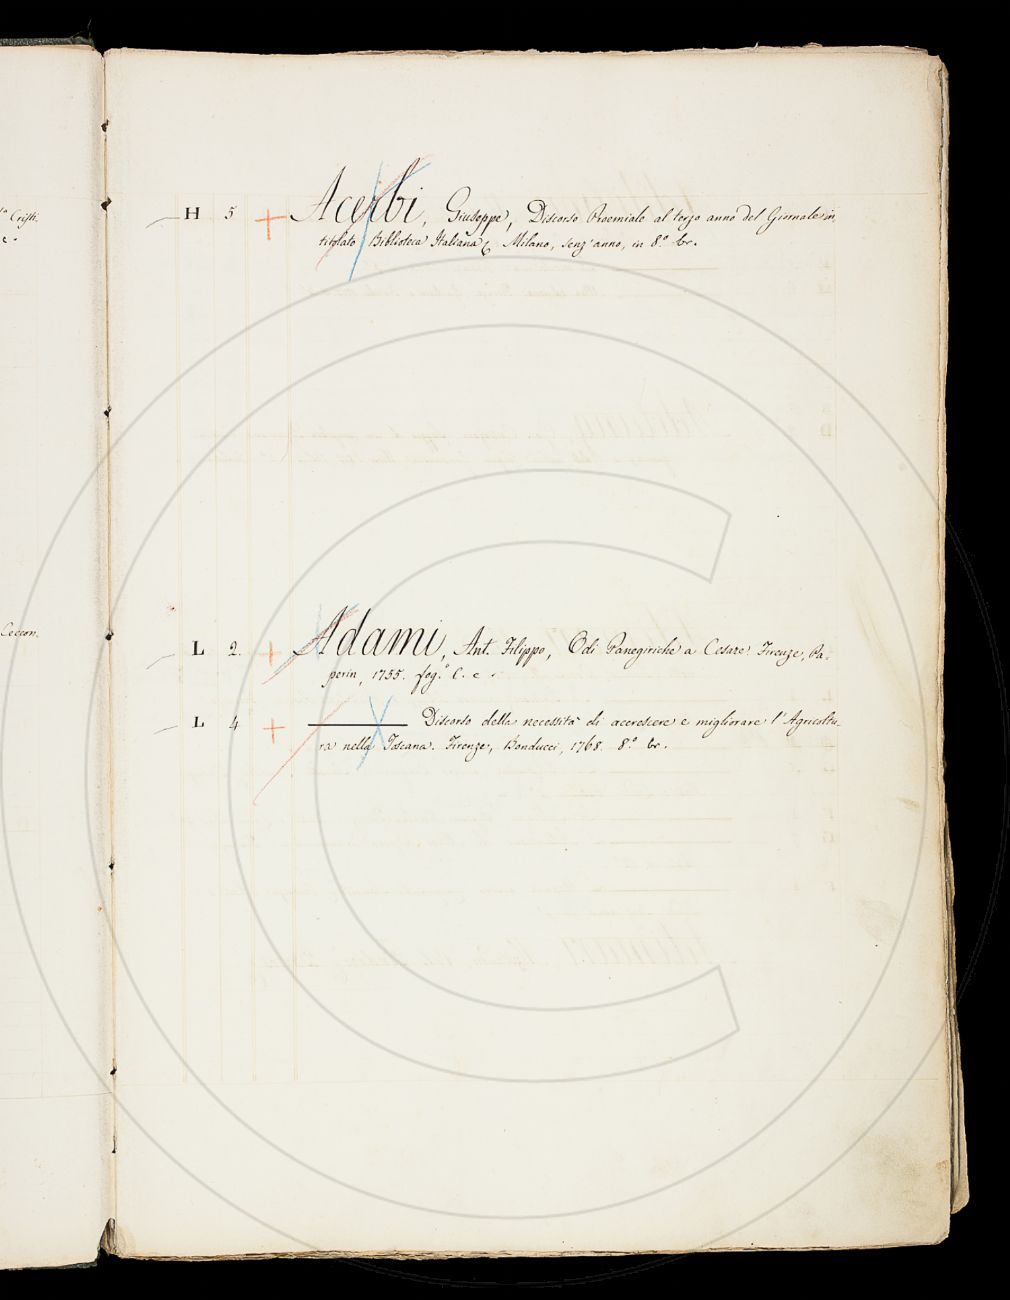 ta Cristi.
c.
H 5 + Acerbi, Giuseppe, Discorso Proemiale al terzo anno del Giornale in,
titolato Biblioteca Italiana Milano, senz'anno, in 8.° br.
Ceccon.
L 2. + Adami, Ant. Filippo, Odi Panegiriche a Cesare. Firenze, Pa-
perin, 1755. fog.° l. e
L 4 + Discorso della necessità di accrescere e migliorare l'Agricoltu-
ra nella Toscana. Firenze, Bonducci, 1768. 8.° br.